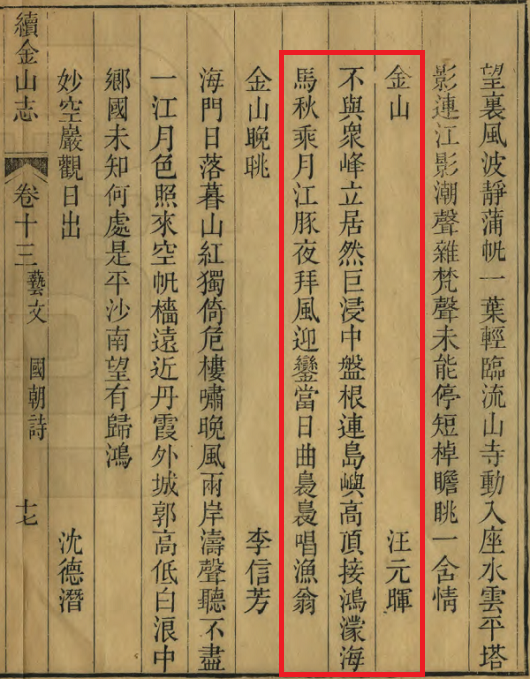 望裏風波靜蒲帆一葉輕臨流山寺動入座水雲平塔
影連江影潮聲雜梵聲未能停短棹瞻眺一含情
金山 汪元暉
不與衆峰立居然巨浸中盤根連島嶼高頂接鴻濛海
馬秋乘月江豚夜拜風迎鑾當日曲裊裊唱漁翁
金山晚眺 李信芳
海門日落暮山紅獨倚危樓嘯晚風兩岸濤聲聽不盡
一江月色照來空帆檣遠近丹霞外城郭高低白浪中
鄉國未知何處是平沙南望有歸鴻
妙空巖觀日出 沈德潛
續金山志 卷十三 藝文 國朝詩 十七